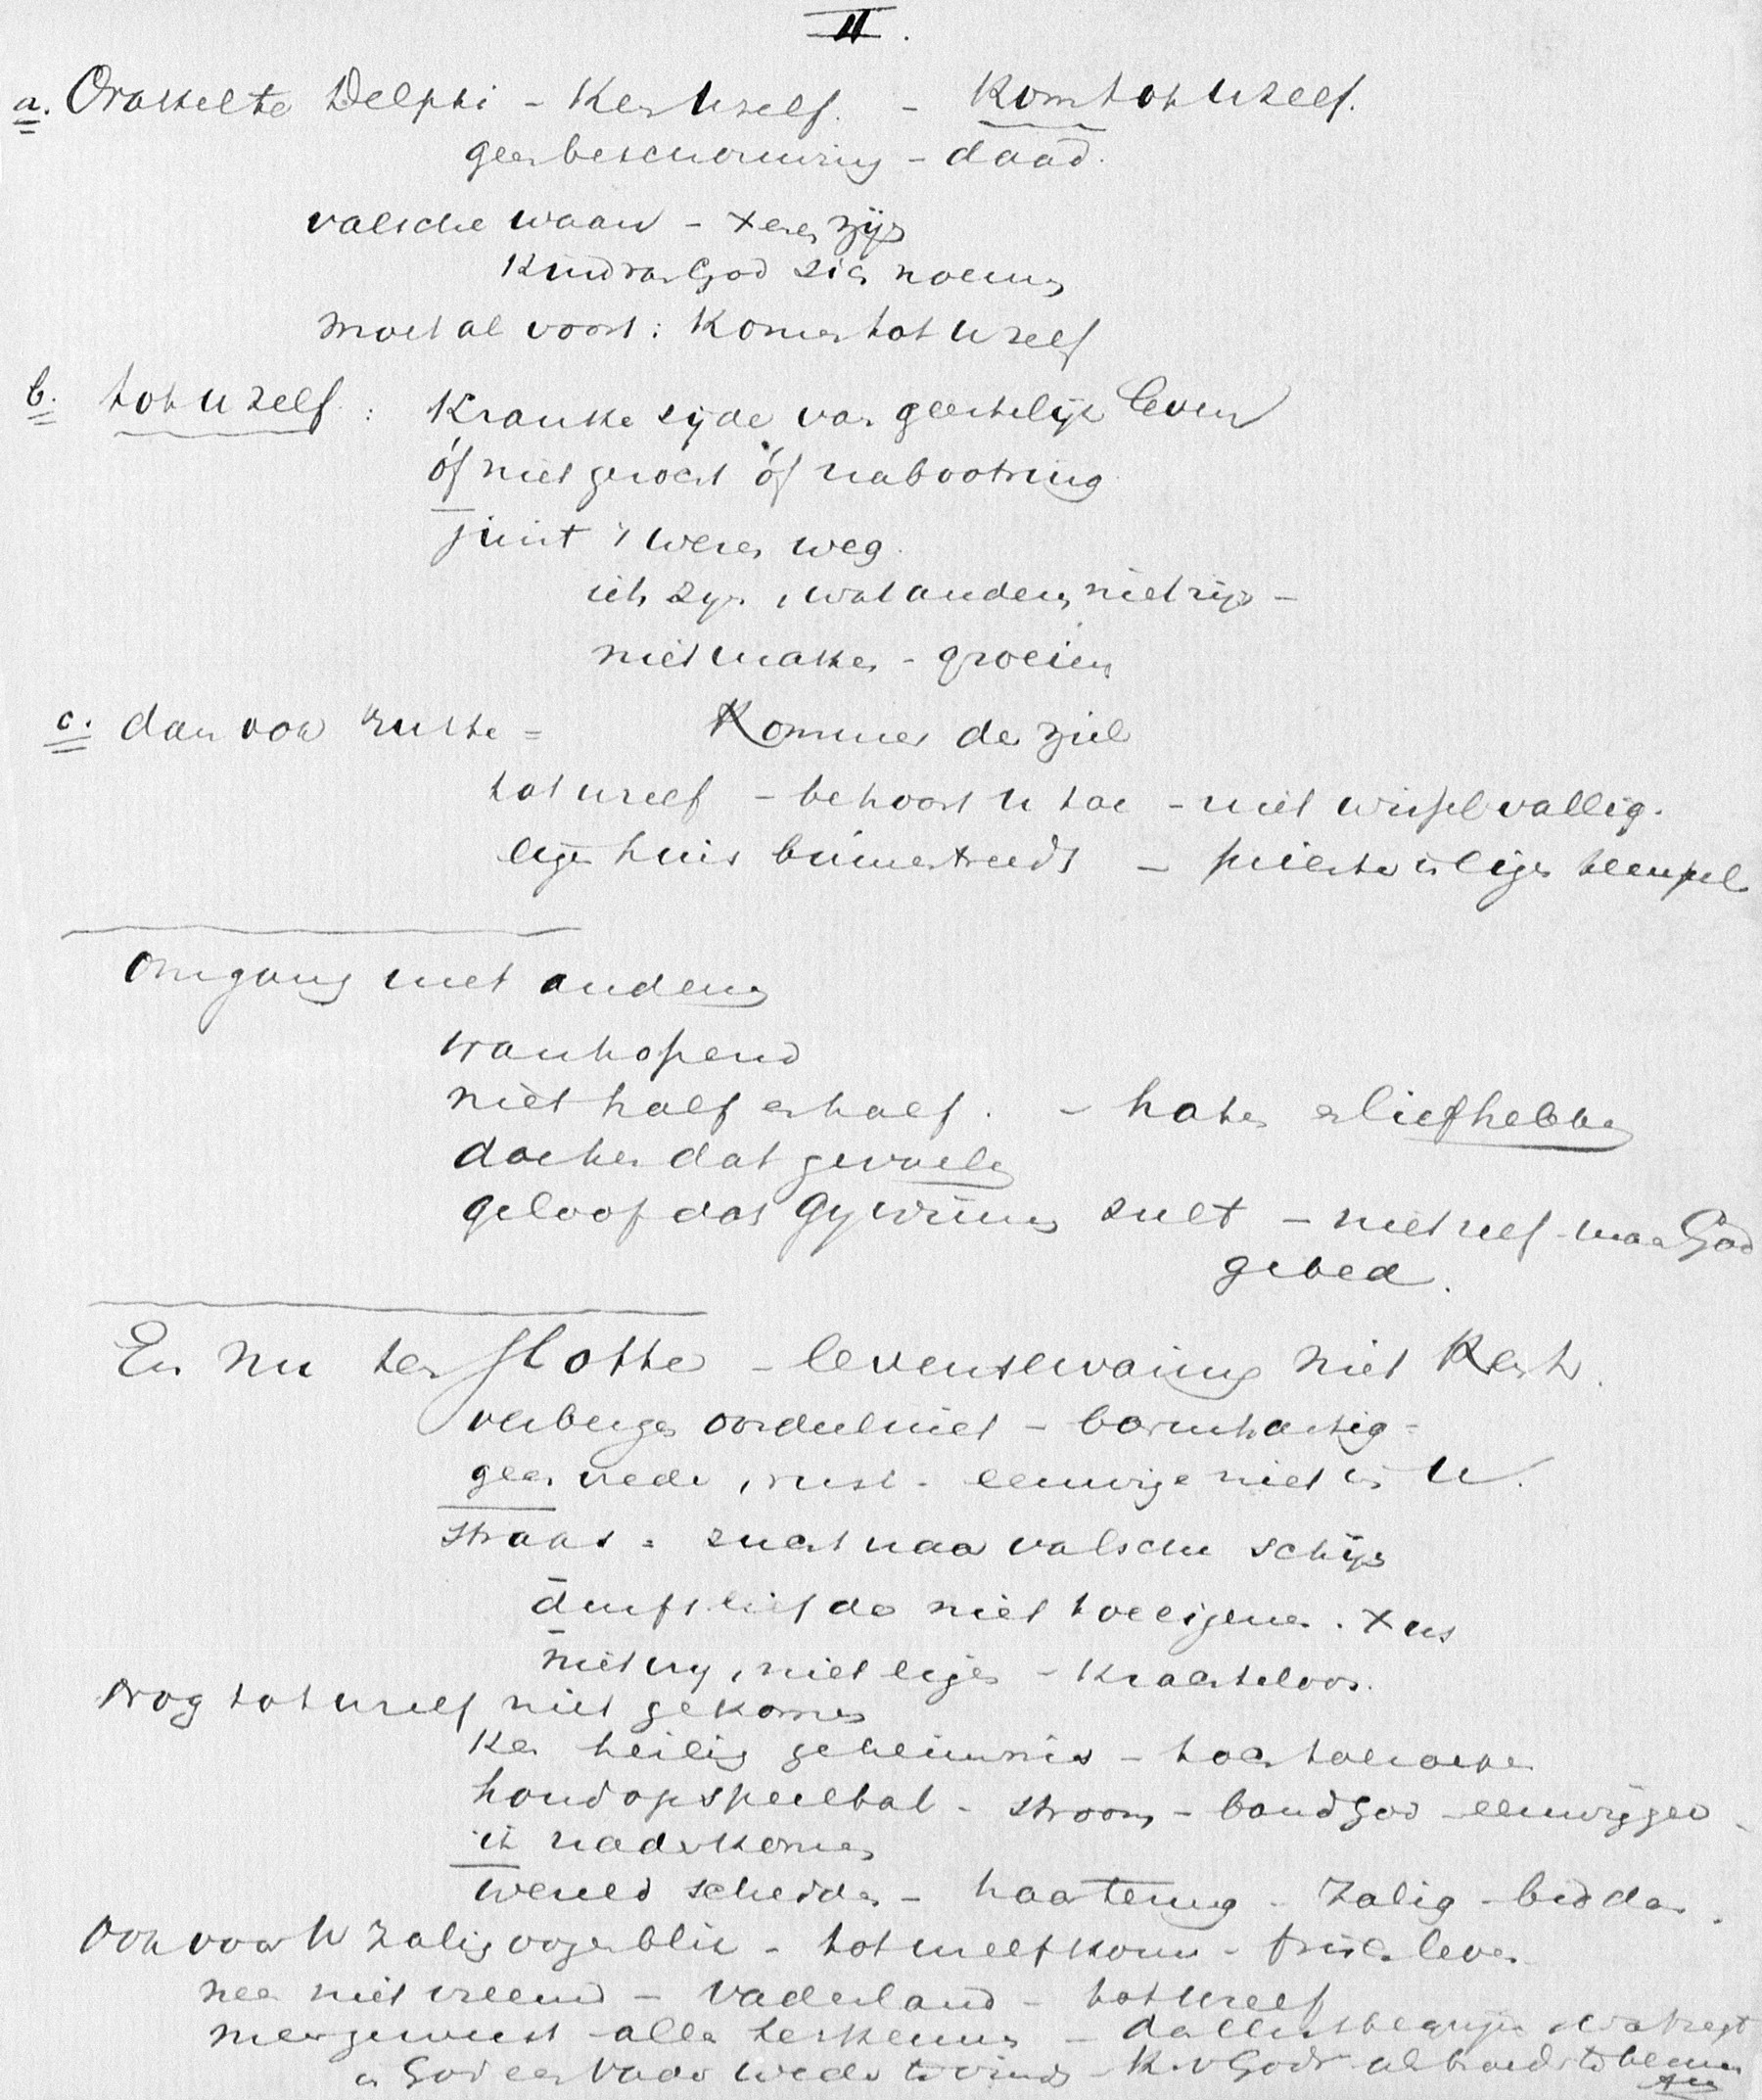 II.
a. Orakel te Delphi - Ken Uzelf. - Kom tot Uzelf.
geen beschouwing - daad.
valsche waan - Xen zijn
Kind van God zich noemen
moet al voort: Komen tot Uzelf
b. tot u zelf: Kranke zijde van geestelijk leven
óf niet gevoel óf nabootsing
juist 's weer weg.
iets zijn, wat anderen niet zijn -
niet maken - groeien
c. dan ook ruste = Komme de ziel
tot uzelf - behoort U toe - niet wispelvallig.
eigen huis binnentreedt - priester in eigen tempel
Omgang met anderen
wanhopend
niet half en half. - haten en liefhebben
doch en dat gevoelen
geloof dat Gy winnen zult - niet zelf maar God
gebed.
En nu ten slotte - levenservaring niet Kent.
verbergen oordeel niet - barmhartig -
geen vrede, rust - eeuwige niet in U.
straat = zucht naar valschen schijn
durft liefde niet toeeigenen. Xus
niet vrij, niet eigen - krachteloos.
Nog tot uzelf niet gekomen
Ken heilig geheimnis - toen
houd op speelbal - stroom - band God - eeuwig
ik nader komen
wereld scheiden - haar terug - zalig - bidden.
Ook voor U zalig oogenblik - tot uzelf kom - leven
neen niet vreemd - Vaderland - tot Uzelf
meer geweest alle herkennen -
en God een Vader weder te vinden - K. v God